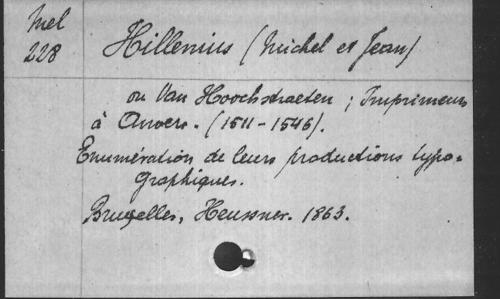 Mel
228
Hillenius (Michel et Jean)
ou Van Hoochstraeten ; Imprimeurs
à Anvers. (1511-1546).
Enumération de leurs productions typo-
graphiques.
Bruxelles, Heussner. 1863.